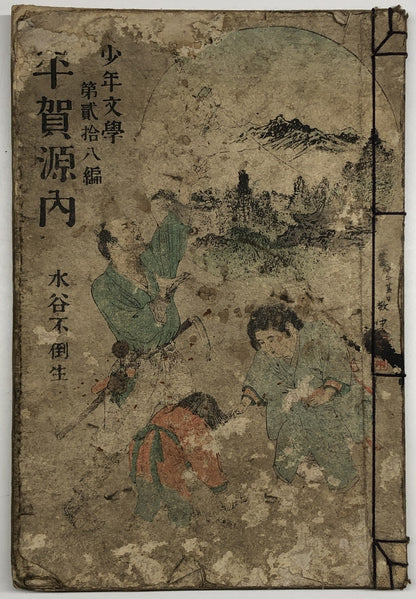 少年文學
第貳拾八編
平賀源内
水谷不倒生